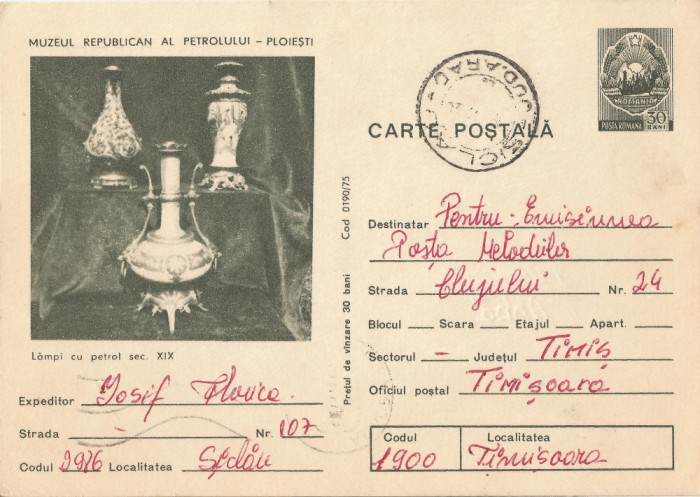 MUZEUL REPUBLICAN AL PETROLULUI – PLOIEȘTI
Lămpi cu petrol sec. XIX
Expeditor Iosif Florica
Strada - Nr. 107
Codul 2976 Localitatea Șiclău
Prețul de vînzare 30 bani Cod 0190/75
CARTE POȘTALĂ
JUD. ARAD
ȘICLAU
ROMANIA
POSTA ROMANA 30 BANI
Destinatar Pentru-Emisiunea
Poșta Melodiilor
Strada Clujului Nr. 24
Blocul Scara Etajul Apart.
Sectorul - Județul TIMIȘ
Oficiul poștal TIMIȘOARA
Codul Localitatea
1900 Timișoara